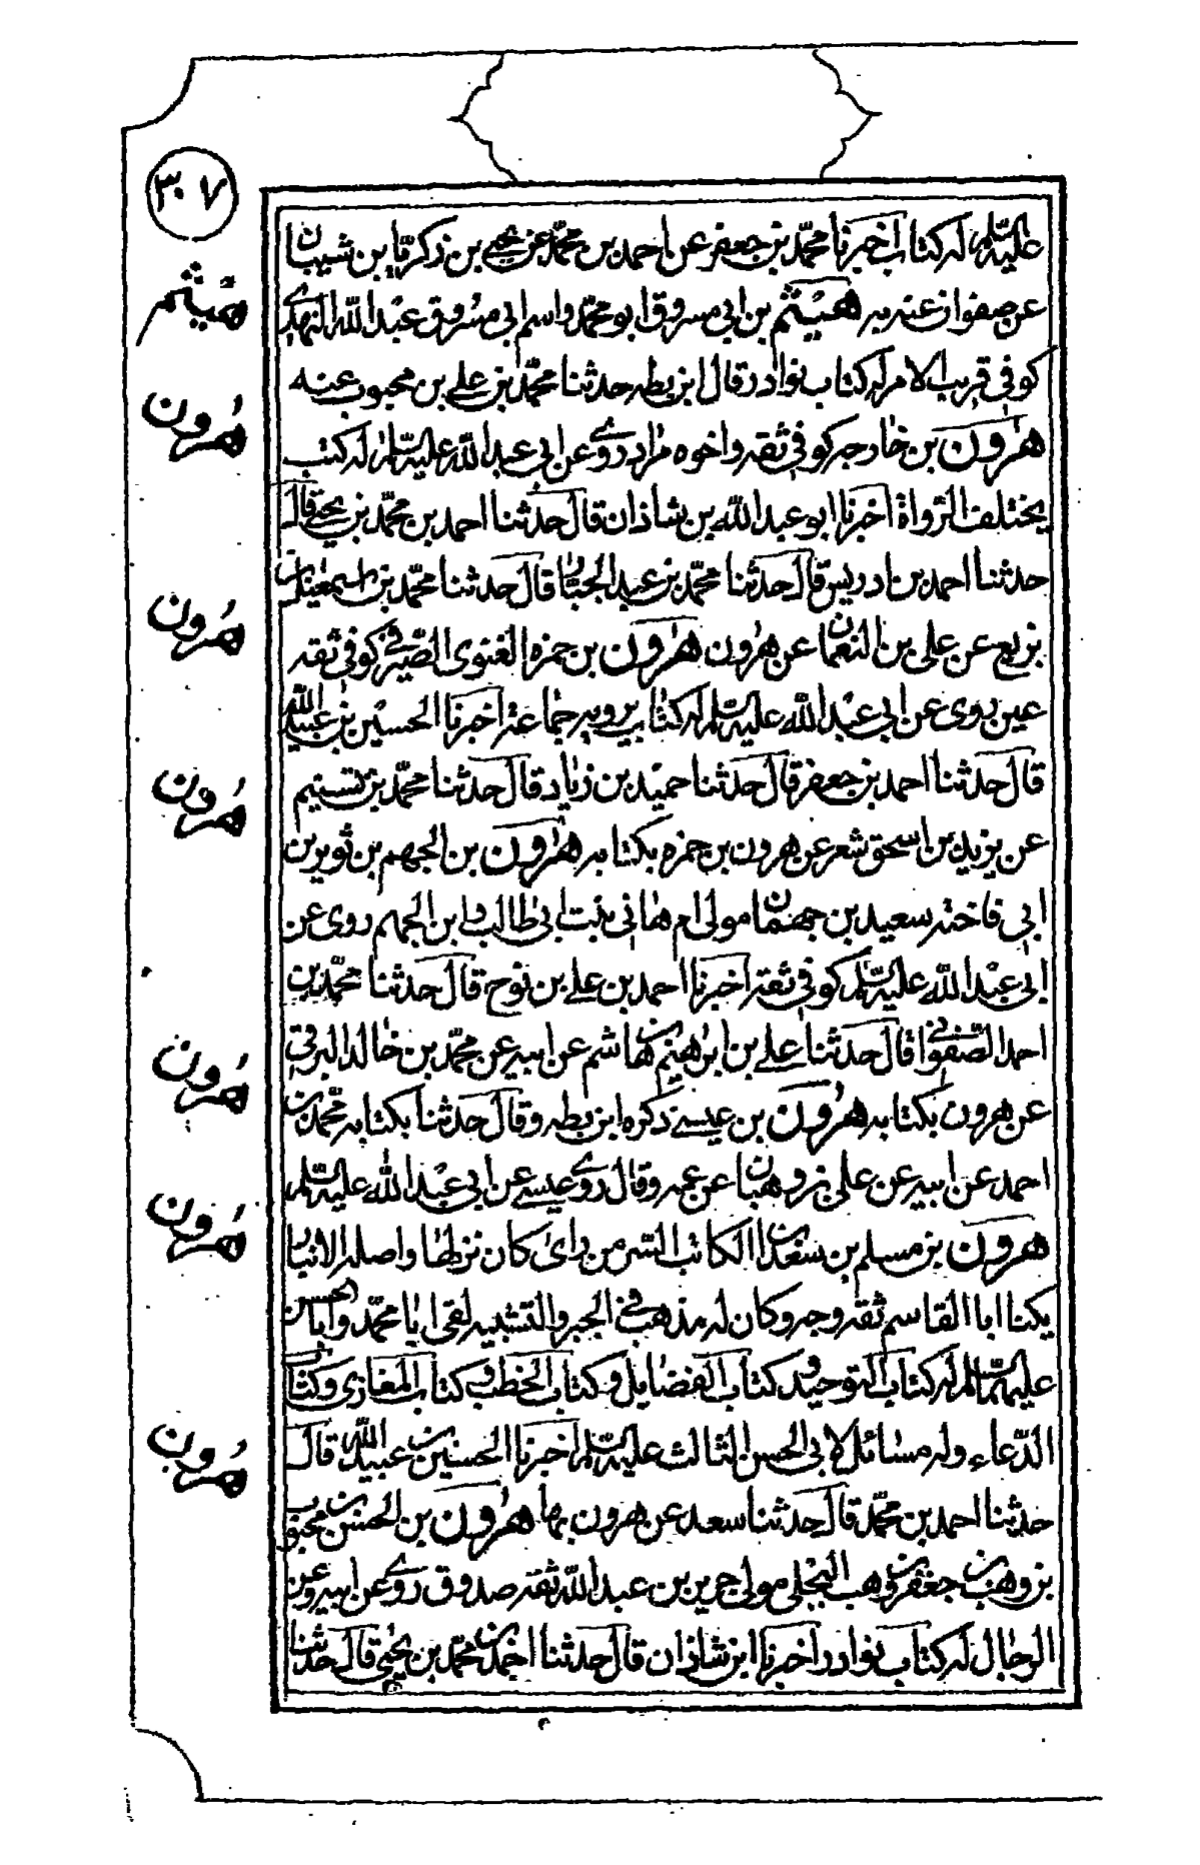 ٣٠٧
عليه السّلم له كتاب اخبرنا محمّد بن جعفر عن احمد بن محمّد عن يحيى بن زكريّا بن شيبان
عن صفوان عنه به هيثم بن ابى مسروق ابو محمّد واسم ابى مسروق عبد الله النهدى
هيثم
كوفى قريب الامر له كتاب نوادر قال ابن بطه حدثنا محمّد بن على بن محبوب عنه
هرون
هرون بن خارجه كوفى ثقه واخوه مراد روى عن ابى عبد الله عليه السّلم له كتب
يختلف الرواة اخبرنا ابو عبد الله بن شاذان قال حدثنا احمد بن محمّد بن يحيى قال
حدثنا احمد بن ادريس قال حدثنا محمّد بن عبد الجبّار قال حدثنا محمّد بن اسمعيل بن
هرون
بزيع عن على بن النعمان عن هرون هرون بن حمزه الغنوى الصّيرفى كوفى ثقه
عين روى عن ابى عبد الله عليه السّلم له كتاب يرويه جماعة اخبرنا الحسين بن عبيد الله
قال حدثنا احمد بن جعفر قال حدثنا حميد بن زياد قال حدثنا محمّد بن تسنيم
هرون
عن يزيد بن اسحق شعر عن هرون بن حمزه بكتابه هرون بن الجهم بن ثوير بن
ابى فاخته سعيد بن جهمان مولى ام هانى بنت ابى طالب و ابن الجهم روى عن
ابى عبد الله عليه السّلم كوفى ثقة اخبرنا احمد بن على بن نوح قال حدثنا محمّد بن
احمد الصّفوانى قال حدثنا على بن ابرهيم بن هاشم عن ابيه عن محمّد بن خالد البرقى
هرون
عن هرون بكتابه هرون بن عيسى ذكره ابن بطه وقال حدثنا بكتابه محمّد بن
احمد عن ابيه عن على بن وهبان عن عمه وقال روى عيسى عن ابى عبد الله عليه السّلم
هرون
هرون بن مسلم بن سعدان الكاتب السّر من راى كان نزلها واصله الانبار
يكنا ابا القاسم ثقه وجه وكان له مذهب فى الجبر والتشبيه لقى ابا محمّد وابا الحسن
عليهما السّلم له كتاب التوحيد و كتاب الفضايل و كتاب الخطب و كتاب المغازى و كتاب
الدّعاء وله مسائل لابى الحسن الثالث عليه السّلم اخبرنا الحسين بن عبيد الله قال
هرون
حدثنا احمد بن محمّد قال حدثنا سعد عن هرون بها هرون بن الحسن بن محبوب
بن وهب بن جعفر بن وهب البجلى مولى جرير بن عبد الله ثقة صدوق روى عن ابيه وعن
الرجال له كتاب نوادر اخبرنا ابن شاذان قال حدثنا احمد بن محمّد بن يحيى قال حدثنا